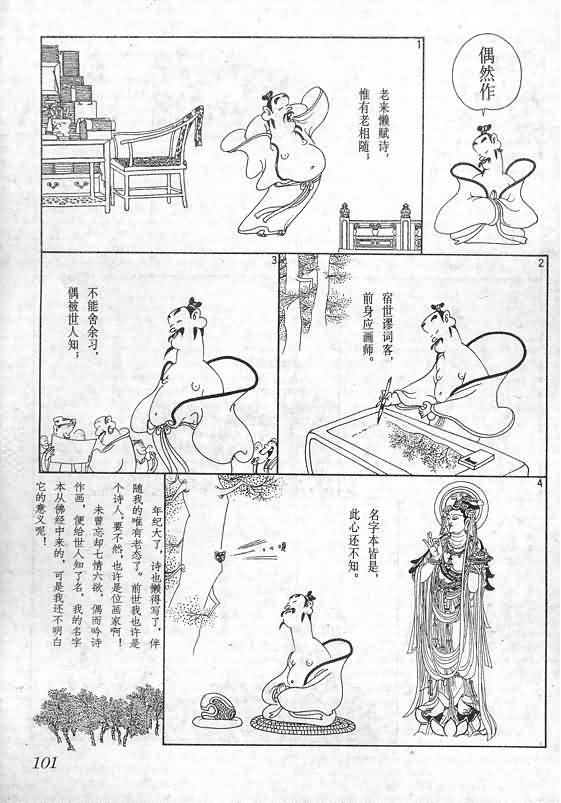 偶然作
1
老来懒赋诗，
惟有老相随；
2
宿世谬词客，
前身应画师。
3
不能舍余习，
偶被世人知；
4
名字本皆是，
此心还不知。
嘎
年纪大了，诗也懒得写了，伴
随我的唯有老态了。前世我也许是
个诗人，要不然，也许是位画家啊！
未曾忘却七情六欲，偶而吟诗
作画，便给世人知了名，我的名字
本从佛经中来的，可是我还不明白
它的意义呢！
101